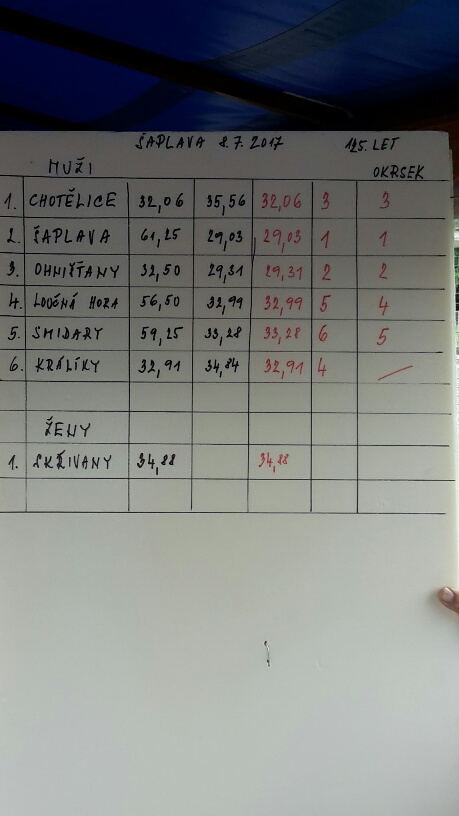 ŠAPLAVA 8.7.2017 125. LET
MUŽI OKRSEK
1. CHOTĚLICE 32,06 35,56 32,06 3 3
2. ŠAPLAVA 61,25 29,03 29,03 1 1
3. OHNIŠŤANY 32,50 29,31 29,31 2 2
4. LOUČNÁ HORA 56,50 32,99 32,99 5 4
5. SMIDARY 59,25 33,28 33,28 6 5
6. KRÁLÍKY 32,91 34,84 32,91 4
ŽENY
1. SKŘIVANY 34,88 34,88